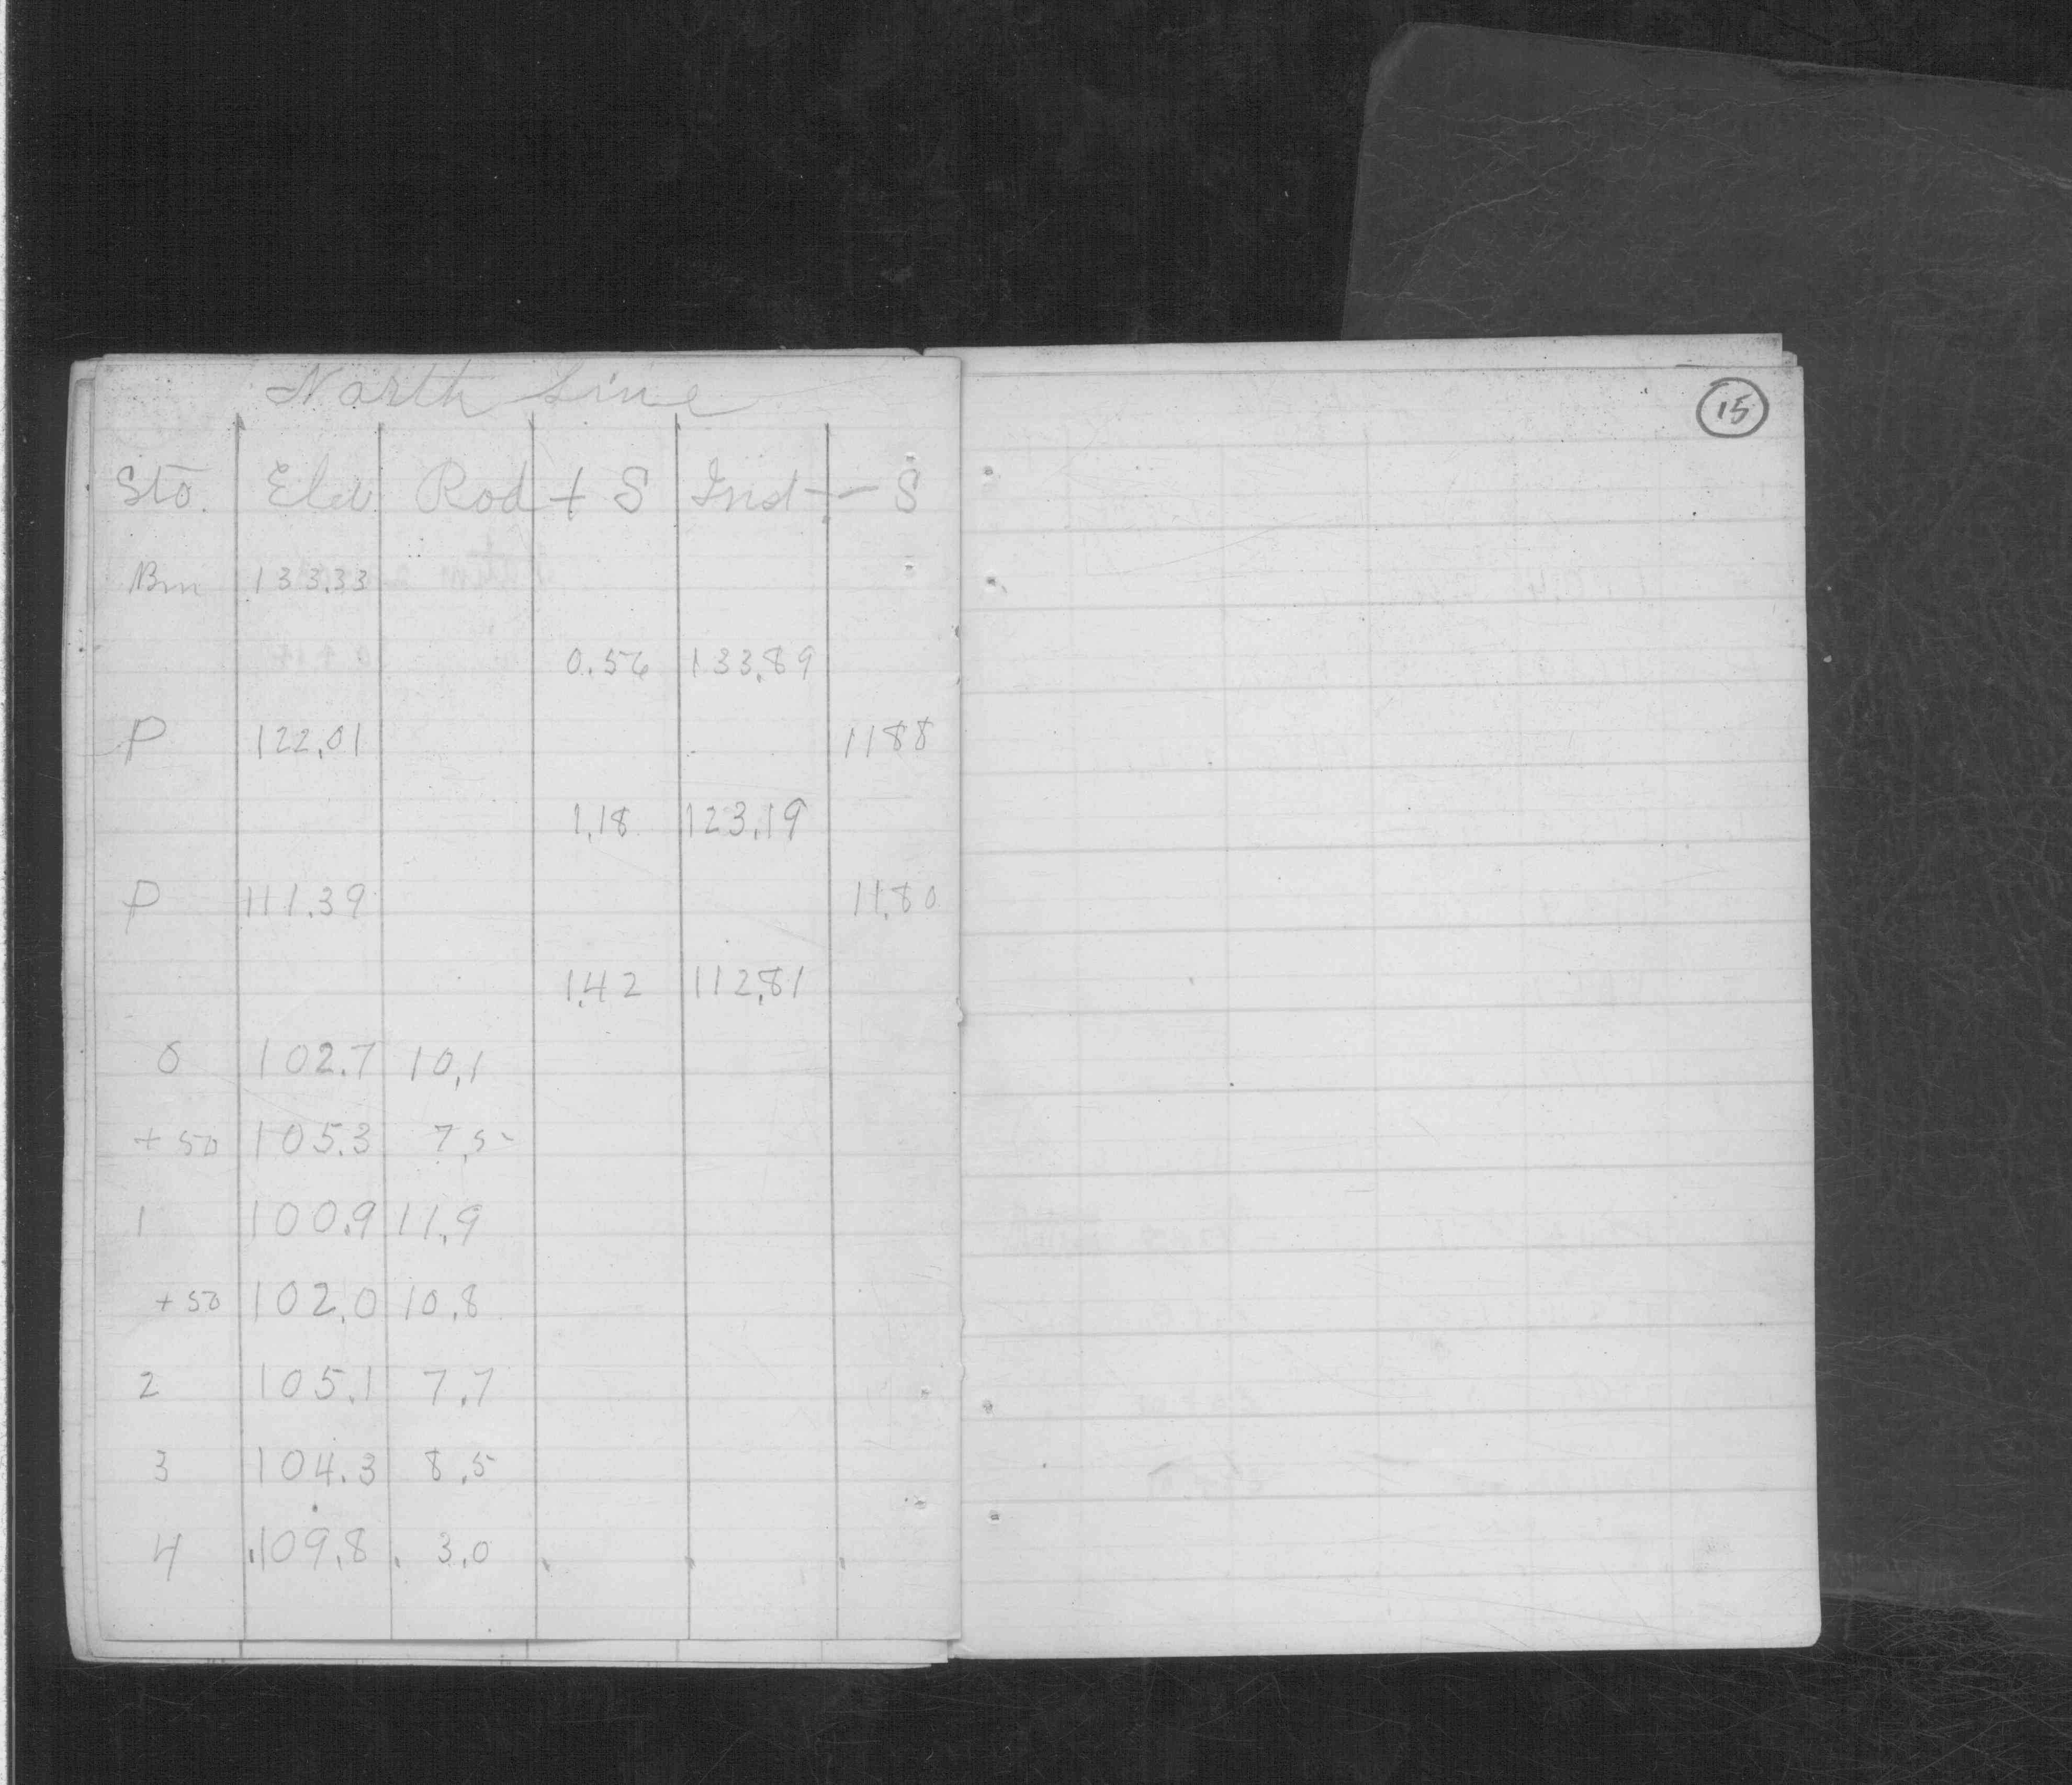 North Line
Sta. Elev Rod + S Inst - S
Bm 133.33
0.56 133.89
P 122.01 1188
1.18 123.19
P 111.39 11.80
1.42 112.81
0 102.7 10.1
+ 50 105.3 7.5
1 100.9 11.9
+ 50 102.0 10.8
2 105.1 7.7
3 104.3 8.5
4 109.8 3.0
15